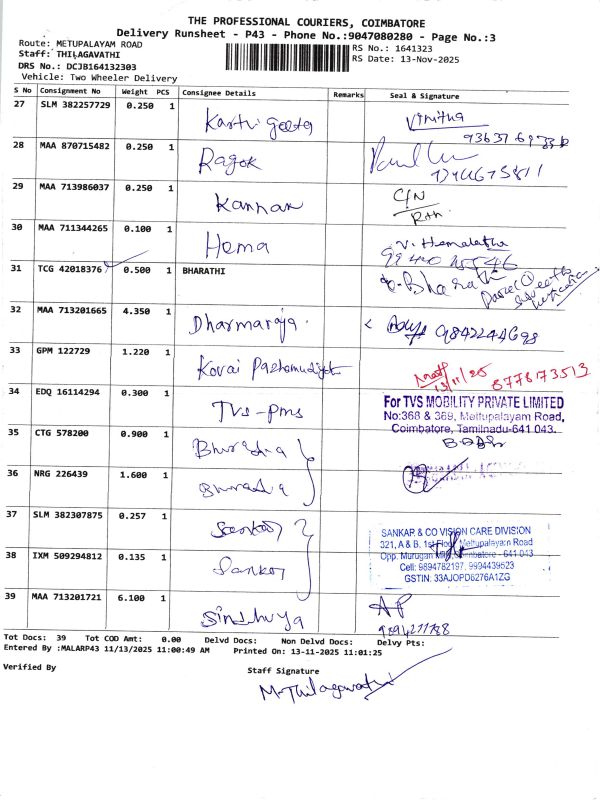 THE PROFESSIONAL COURIERS, COIMBATORE
Delivery Runsheet - P43 - Phone No.:9047080280 - Page No.:3
Route: METUPALAYAM ROAD
Staff: THILAGAVATHI
DRS No.: DCJB164132303
Vehicle: Two Wheeler Delivery
RS No.: 1641323
RS Date: 13-Nov-2025
S No Consignment No Weight PCS Consignee Details Remarks Seal & Signature
27 SLM 382257729 0.250 1 Karthi geetha Vinitha
28 MAA 870715482 0.250 1 Ragok
29 MAA 713986037 0.250 1 Kannan C/N
30 MAA 711344265 0.100 1 Hema V. Hemalatha
31 TCG 42018376 0.500 1 BHARATHI Bharathi
32 MAA 713201665 4.350 1 Dharmaraja
33 GPM 122729 1.220 1 Kovai
13/11/25
34 EDQ 16114294 0.300 1 TVS-pms
For TVS MOBILITY PRIVATE LIMITED
No:368 & 369, Mettupalayam Road,
Coimbatore, Tamilnadu-641 043.
35 CTG 578200 0.900 1
36 NRG 226439 1.600 1
37 SLM 382307875 0.257 1 Sankar
SANKAR & CO VISION CARE DIVISION
321, A & B, 1st Floor, Mettupalayam Road
Opp. Murugan Coimbatore - 641 043
Cell: 9894782197, 9994439523
GSTIN: 33AJOPD6276A1ZG
38 IXM 509294812 0.135 1 Sankar
39 MAA 713201721 6.100 1 Sindhuya AP
Tot Docs: 39 Tot COD Amt: 0.00 Delvd Docs: Non Delvd Docs: Delvy Pts:
Entered By :MALARP43 11/13/2025 11:00:49 AM Printed On: 13-11-2025 11:01:25
Verified By Staff Signature
M. Thilagavathi